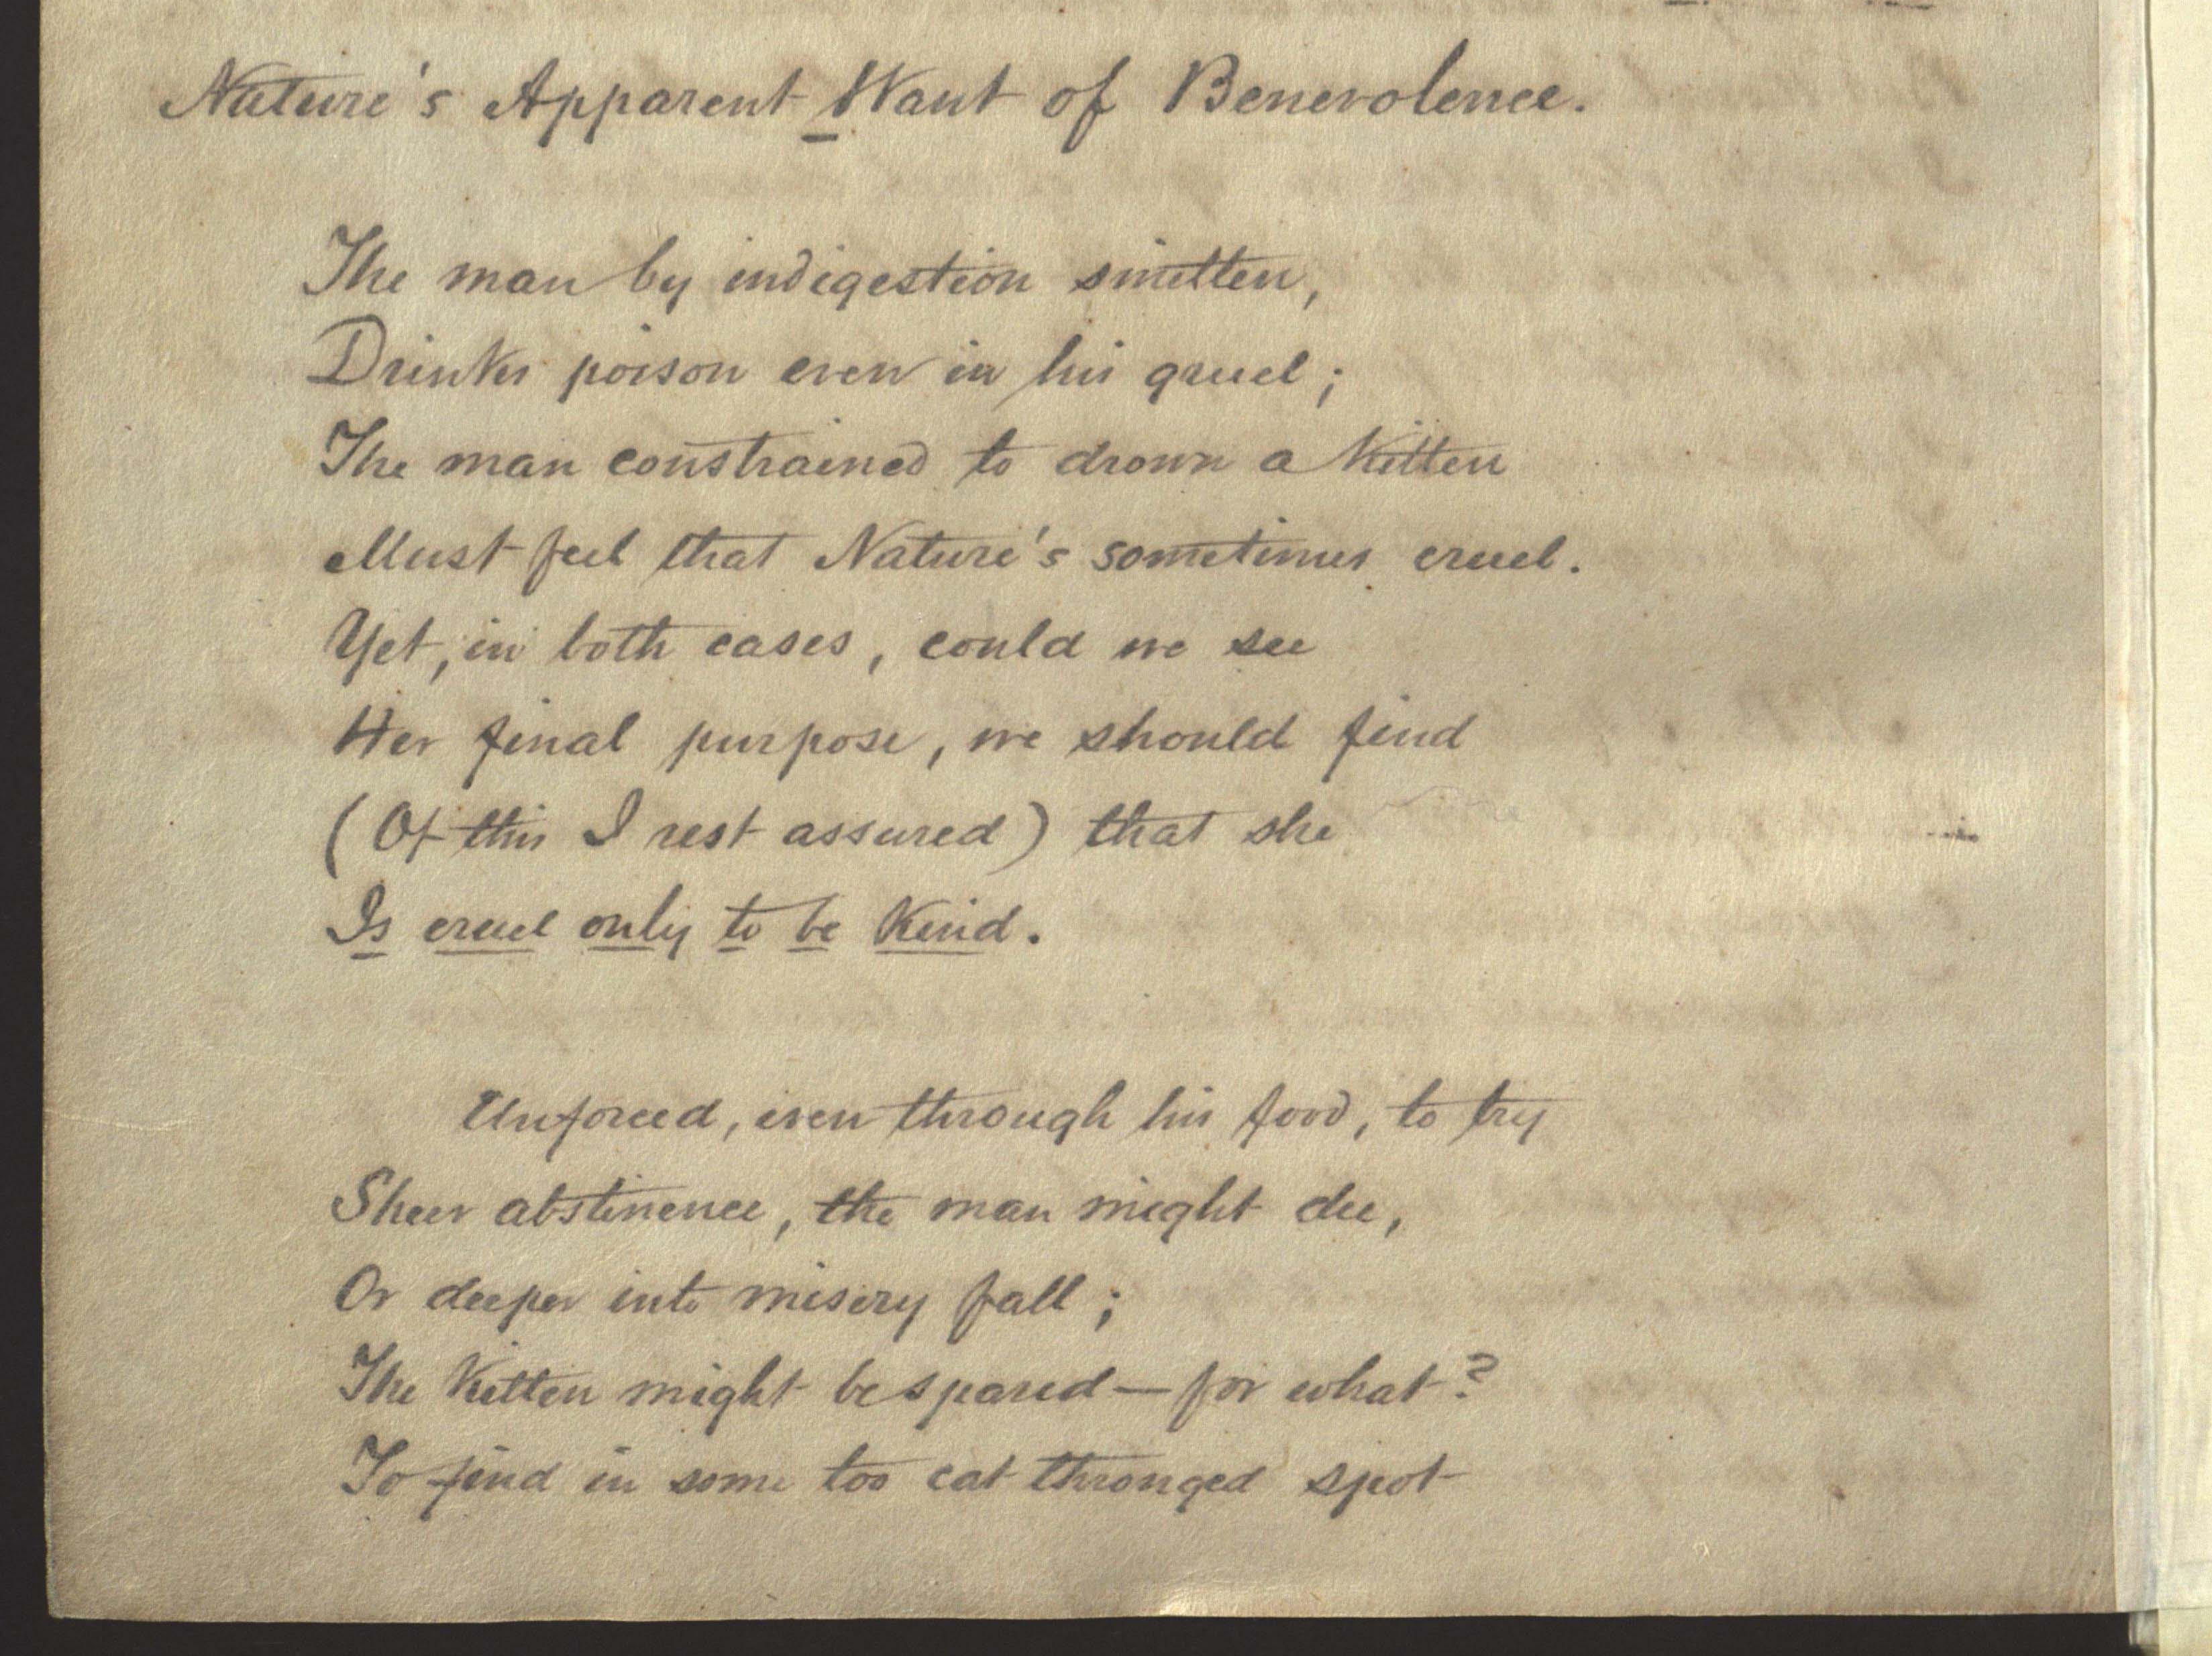 Nature's Apparent Want of Benevolence.
The man by indigestion smitten,
Drinks poison even in his gruel;
The man constrained to drown a Kitten
Must feel that Nature's sometimes cruel.
Yet, in both cases, could we see
Her final purpose, we should find
(Of this I rest assured) that she
Is cruel only to be Kind.
Unforced, even through his food, to try
Sheer abstinence, the man might die,
Or deeper into misery fall;
The Kitten might be spared — for what?
To find in some too cat thronged spot